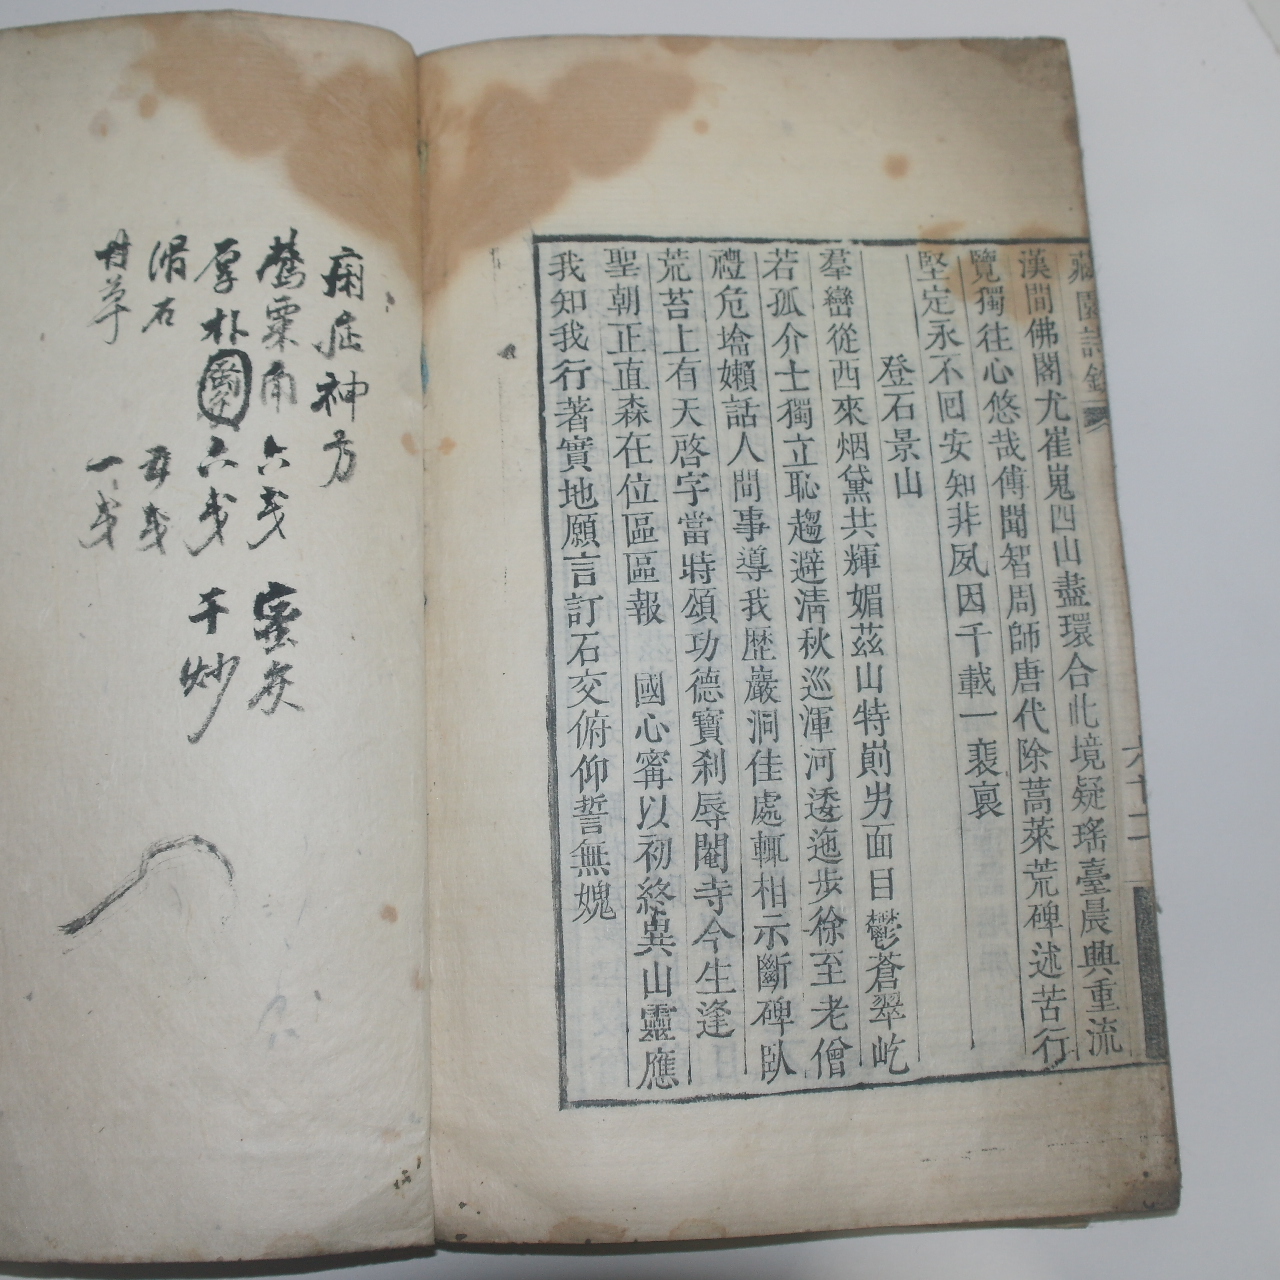 藏園詩鈔
六十二
漢間佛閣尤崔嵬四山盡環合此境疑瑤臺晨興重流
覽獨往心悠哉傳聞智周師唐代除蒿萊荒碑述苦行
堅定永不回安知非夙因千載一裴裒
登石景山
羣巒從西來烟黛共輝媚茲山特崱屴面目鬱蒼翠屹
若孤介士獨立恥趨避清秋巡渾河逶迤步徐至老僧
禮危墖嬾話人間事導我歷巖洞佳處輒相示斷碑臥
荒苔上有天啓字當時頌功德寶刹辱閹寺今生逢
聖朝正直森在位區區報 國心甯以初終異山靈應
我知我行著實地願言訂石交俯仰誓無媿
痢症神方
鶯粟角 六戔 蜜炙
厚朴 六戔 干炒
滑石 五戔
甘草 一戔